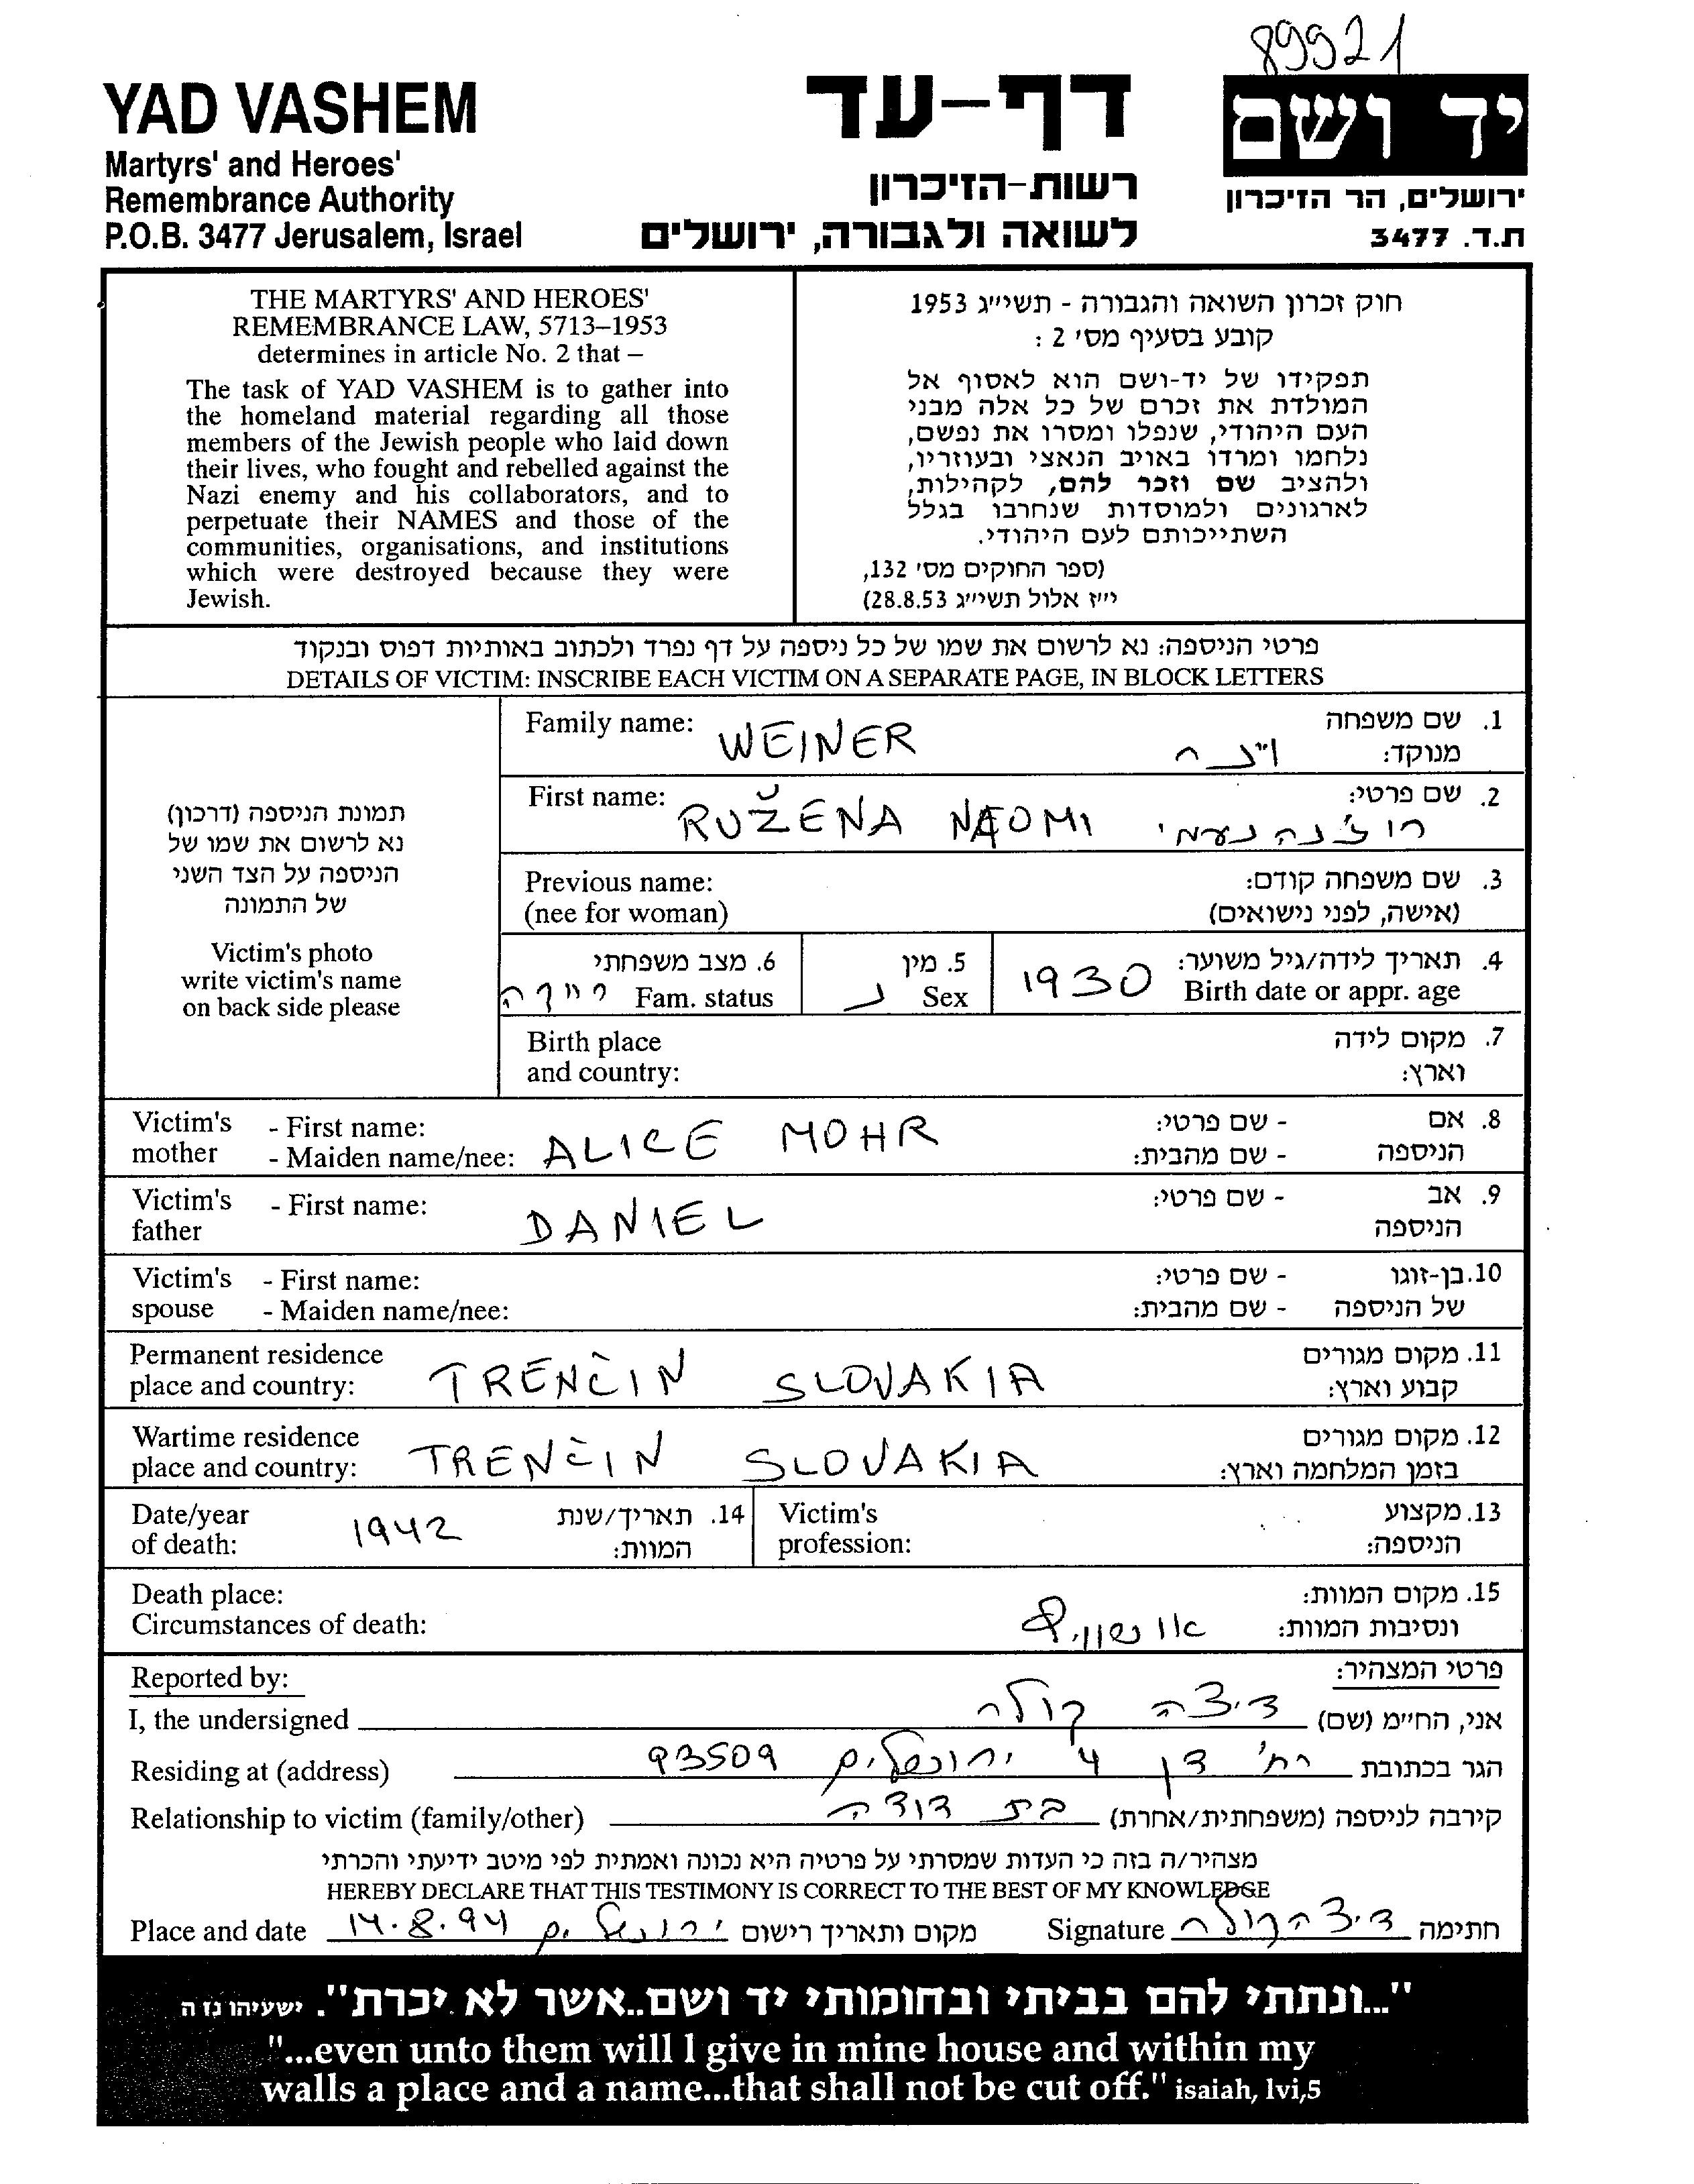 89921
YAD VASHEM
Martyrs' and Heroes'
Remembrance Authority
P.O.B. 3477 Jerusalem, Israel
דף-עד
רשות-הזיכרון
לשואה ולגבורה, ירושלים
יד ושם
ירושלים, הר הזיכרון
ת.ד. 3477
THE MARTYRS' AND HEROES'
REMEMBRANCE LAW, 5713–1953
determines in article No. 2 that –
The task of YAD VASHEM is to gather into
the homeland material regarding all those
members of the Jewish people who laid down
their lives, who fought and rebelled against the
Nazi enemy and his collaborators, and to
perpetuate their NAMES and those of the
communities, organisations, and institutions
which were destroyed because they were
Jewish.
חוק זכרון השואה והגבורה - תשי״ג 1953
קובע בסעיף מס׳ 2 :
תפקידו של יד-ושם הוא לאסוף אל
המולדת את זכרם של כל אלה מבני
העם היהודי, שנפלו ומסרו את נפשם,
נלחמו ומרדו באויב הנאצי ובעוזריו,
ולהציב שם וזכר להם, לקהילות,
לארגונים ולמוסדות שנחרבו בגלל
השתייכותם לעם היהודי.
(ספר החוקים מס׳ 132,
י״ז אלול תשי״ג 28.8.53)
פרטי הניספה: נא לרשום את שמו של כל ניספה על דף נפרד ולכתוב באותיות דפוס ובנקוד
DETAILS OF VICTIM: INSCRIBE EACH VICTIM ON A SEPARATE PAGE, IN BLOCK LETTERS
תמונת הניספה (דרכון)
נא לרשום את שמו של
הניספה על הצד השני
של התמונה
Victim's photo
write victim's name
on back side please
Family name: WEINER 1. שם משפחה
מנוקד:
First name: RUŽENA NAOMI רוז'נה נעמי 2. שם פרטי:
Previous name: 3. שם משפחה קודם:
(nee for woman) (אישה, לפני נישואים)
4. תאריך לידה/גיל משוער: 5. מין 6. מצב משפחתי
Birth date or appr. age 1930 Sex נ Fam. status
Birth place 7. מקום לידה
and country: וארץ:
Victim's - First name: - שם פרטי: 8. אם
mother - Maiden name/nee: ALICE MOHR - שם מהבית: הניספה
Victim's - First name: DANIEL - שם פרטי: 9. אב
father הניספה
Victim's - First name: - שם פרטי: 10. בן-זוגו
spouse - Maiden name/nee: - שם מהבית: של הניספה
Permanent residence 11. מקום מגורים
place and country: TRENČIN SLOVAKIA קבוע וארץ:
Wartime residence 12. מקום מגורים
place and country: TRENČIN SLOVAKIA בזמן המלחמה וארץ:
Date/year 14. תאריך/שנת Victim's 13. מקצוע
of death: 1942 המוות: profession: הניספה:
Death place: 15. מקום המוות:
Circumstances of death: אושוויץ ונסיבות המוות:
Reported by: פרטי המצהיר:
I, the undersigned דיצה קולר אני, החי״מ (שם)
Residing at (address) רח' דן 4 ירושלים 93509 הגר בכתובת
Relationship to victim (family/other) בת דודה קירבה לניספה (משפחתית/אחרת)
מצהיר/ה בזה כי העדות שמסרתי על פרטיה היא נכונה ואמתית לפי מיטב ידיעתי והכרתי
HEREBY DECLARE THAT THIS TESTIMONY IS CORRECT TO THE BEST OF MY KNOWLEDGE
Place and date 14.8.94 ירושלים מקום ותאריך רישום Signature דיצה קולר חתימה
"...ונתתי להם בביתי ובחומותי יד ושם..אשר לא יכרת". ישעיהו נז ה
"...even unto them will I give in mine house and within my
walls a place and a name...that shall not be cut off." isaiah, lvi,5